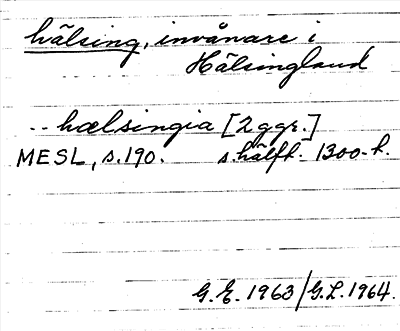 hälsing, invånare i
Hälsingland
-- hælsingia [2 ggr.]
MESL, s.190. s.hälft. 1300-t.
G.E. 1963/G.L.1964.